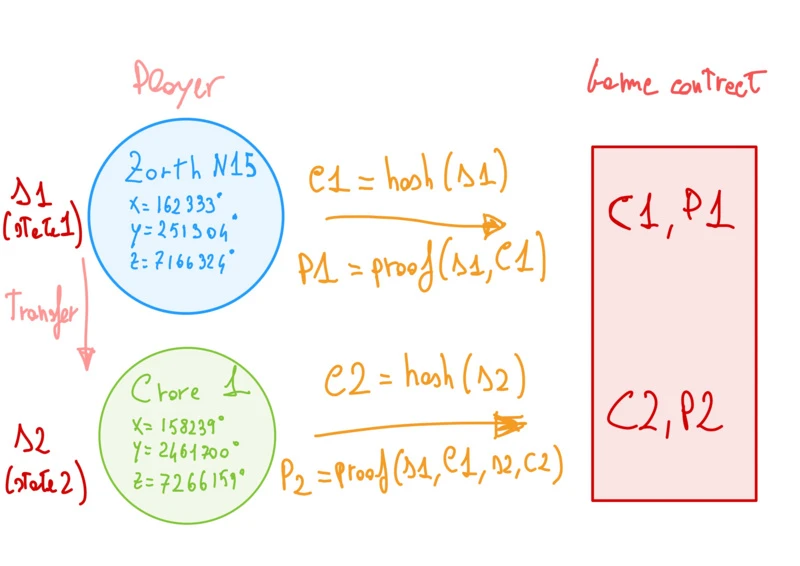 Player
Game contract
Zorth N15
X=162333°
Y=251304°
Z=7166324°
s1
(state1)
C1=hash(s1)
P1=proof(s1,C1)
C1,P1
Transfer
Crore 1
X=158239°
Y=2461700°
Z=7266159°
s2
(state2)
C2=hash(s2)
P2=proof(s1,C1,s2,C2)
C2,P2